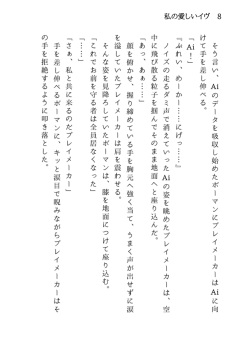 私の愛しいイヴ 8
そう言い、Aiのデータを吸収し始めたボーマンにプレイメーカーはAiに向
けて手を差し伸べる。
「Ai!」
『ぷれい、めーかー……にげっ……』
ノイズの走るダミ声で消えていったAiの姿を眺めたプレイメーカーは、空
中に飛び散る粒子を掴んでそのまま地面へと座り込んだ。
「あっ、あぁ……」
顔を俯かせ、握り締めている手を胸元へ強く当て、うまく声が出せずに涙
を溢していたプレイメーカーは肩を震わせる。
そんな姿を見降ろしていたボーマンは、膝を地面につけて座り込む。
「これでお前を守る者は全員居なくなった」
「……」
「さぁ、私と共に来るのだプレイメーカー」
手を差し伸べるボーマンに、キッと涙目で睨みながらプレイメーカーはそ
の手を拒絶するように叩き落とした。